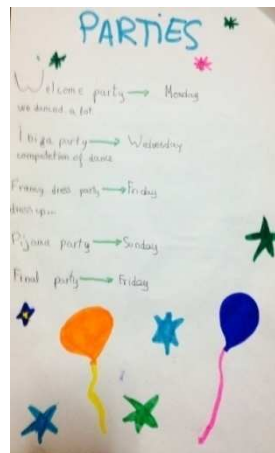 PARTiES
Welcome party → Monday
we danced a lot
Ibiza party → Wednesday
competetion of dance
Franny dress party → Friday
dress up...
Pijama party → Sunday
Final party → Friday